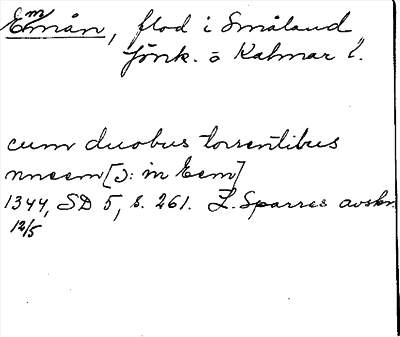 Emån, flod i Småland
Jönk. o Kalmar l.
cum duobus torrentibus
nneem [ɔ: in Eem]
1344, SD 5, s. 261. L. Sparres avskr.
12/5